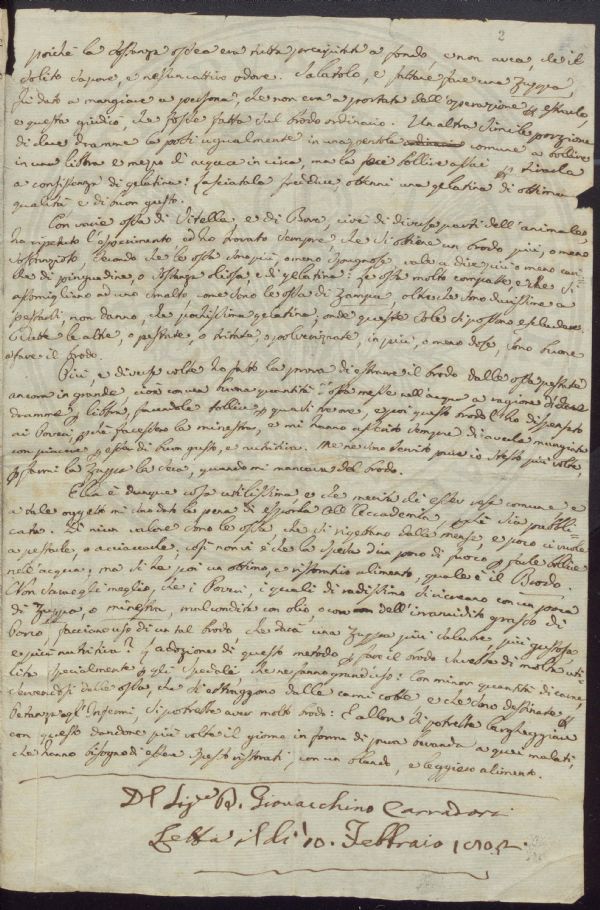 2
poiché la sostanza ossea era tutta precipitata a fondo, e non avea, che il
solito sapore, e nessun cattivo odore. Salatolo, e fattane fare una Zuppa,
fu dato a mangiare a persona, che non era a portata dell'operazione p esterlo,
e questa giudicò, che fosse fatta sul brodo ordinario. Un'altra simile porzione
di due dramme la posi ugualmente in una pentola comune a bollire
in una libbra e mezzo d'acqua in circa, ma la feci bollire assai p tirarla
a consistenza di gelatina: Lasciatala freddare ottenni una gelatina di ottima
qualità e di buon gusto.
Con varie ossa di Vitella e di Bove, cioè di diverse parti dell'animale,
ho ripetuto l'esperimento, ed ho trovato sempre, che si ottiene un brodo più, o meno
sostanzioso secondo che le ossa son più, o meno spugnose, vale a dire più o meno cari-
che di pinguedine, o sostanza oliosa, e di gelatina: Le ossa molto compatte, e che si
assomigliano ad uno smalto, come sono le ossa di Zampa, oltreché sono durissime a
pestarsi, non danno, che pochissima gelatina; onde queste sole si possono escludere.
Tutte le altre, o pestate, o tritate, o polverizzate, in più, o meno dose, sono buone
a fare il brodo.
Più, e diverse volte ho fatto la prova di estrarre il brodo dalle ossa pestate
ancora in grande, cioè con una buona quantità d'ossa messe nell'acqua a ragione di due
dramme p libbra, facendole bollire p quasi tre ore, e poi questo brodo l'ho dispensato
ai Poveri, perché facessero la minestra, e mi hanno asserito sempre di averla mangiata
con piacere p esser di buon gusto, e nutritiva. Me ne sono servito pure io stesso più volte,
p farmi la Zuppa la sera, quando mi mancava del brodo.
Ella è dunque cosa utilissima e che merita di esser resa comune e
a tale oggetto mi son dato la pena di esporla all'Accademia, perché sia pubbli-
cata. Di niun valore sono le ossa che si rigettano dalle mense, e poco ci vuole
a pestarle, o acciaccarle; così non vi è che la spesa d'un poco di fuoco p farle bollire
nell'acqua; ma si ha poi un ottimo, e ristorativo alimento, quale è il Brodo.
Non sarà egli meglio, che i Poveri, i quali di radissimo si cibano con un poca
di Zuppa, o minestra, mal condita con olio, o con dell'invecidito grasso di
Porco, facciano uso di un tal brodo che darà una Zuppa più salubre più gustosa
e più nutritiva? L'adozione di questo metodo p fare il brodo sarebbe di molta uti-
lità specialmente p gli Spedali, che ne fanno grand'uso: Con minor quantità di carne,
servendosi delle ossa, che si estraggono dalle carni cotte, e che sono destinate p
pietanza agl'Infermi, si potrebbe aver molto brodo: E allora si potrebbe largheggiare
con questo dandone più volte il giorno in forma di pura bevanda a quei malati,
che hanno bisogno di esser spesso ristorati, con un blando, e leggiero alimento.
Del Sig.re D. Giovacchino Carradori
Letta il dì 10. Febbraio 1802.